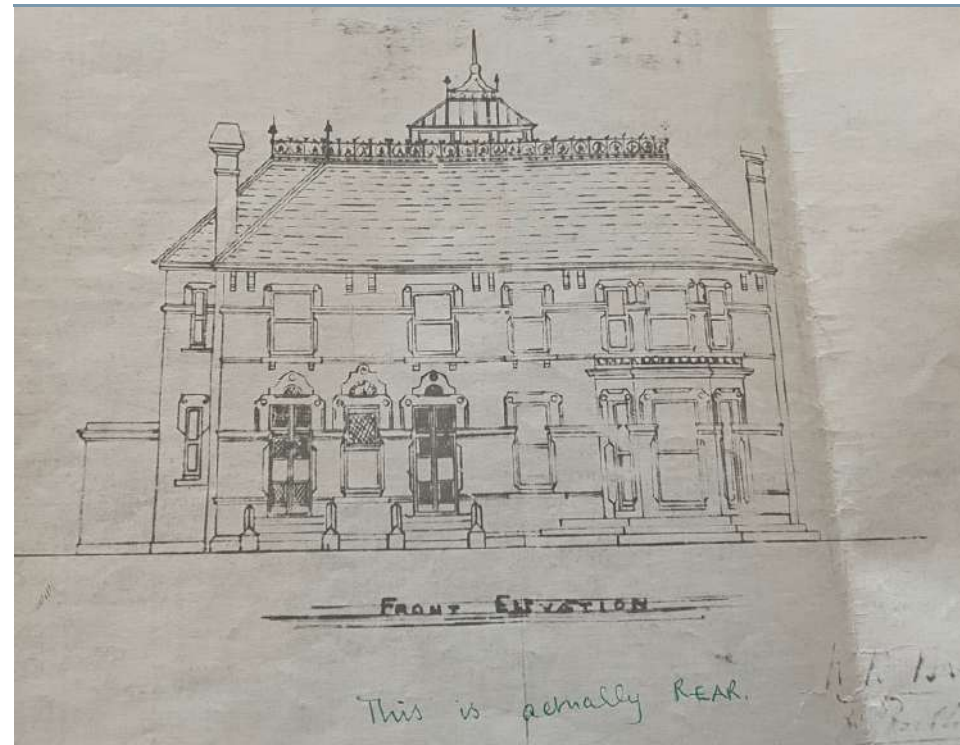 FRONT ELEVATION
This is actually REAR.